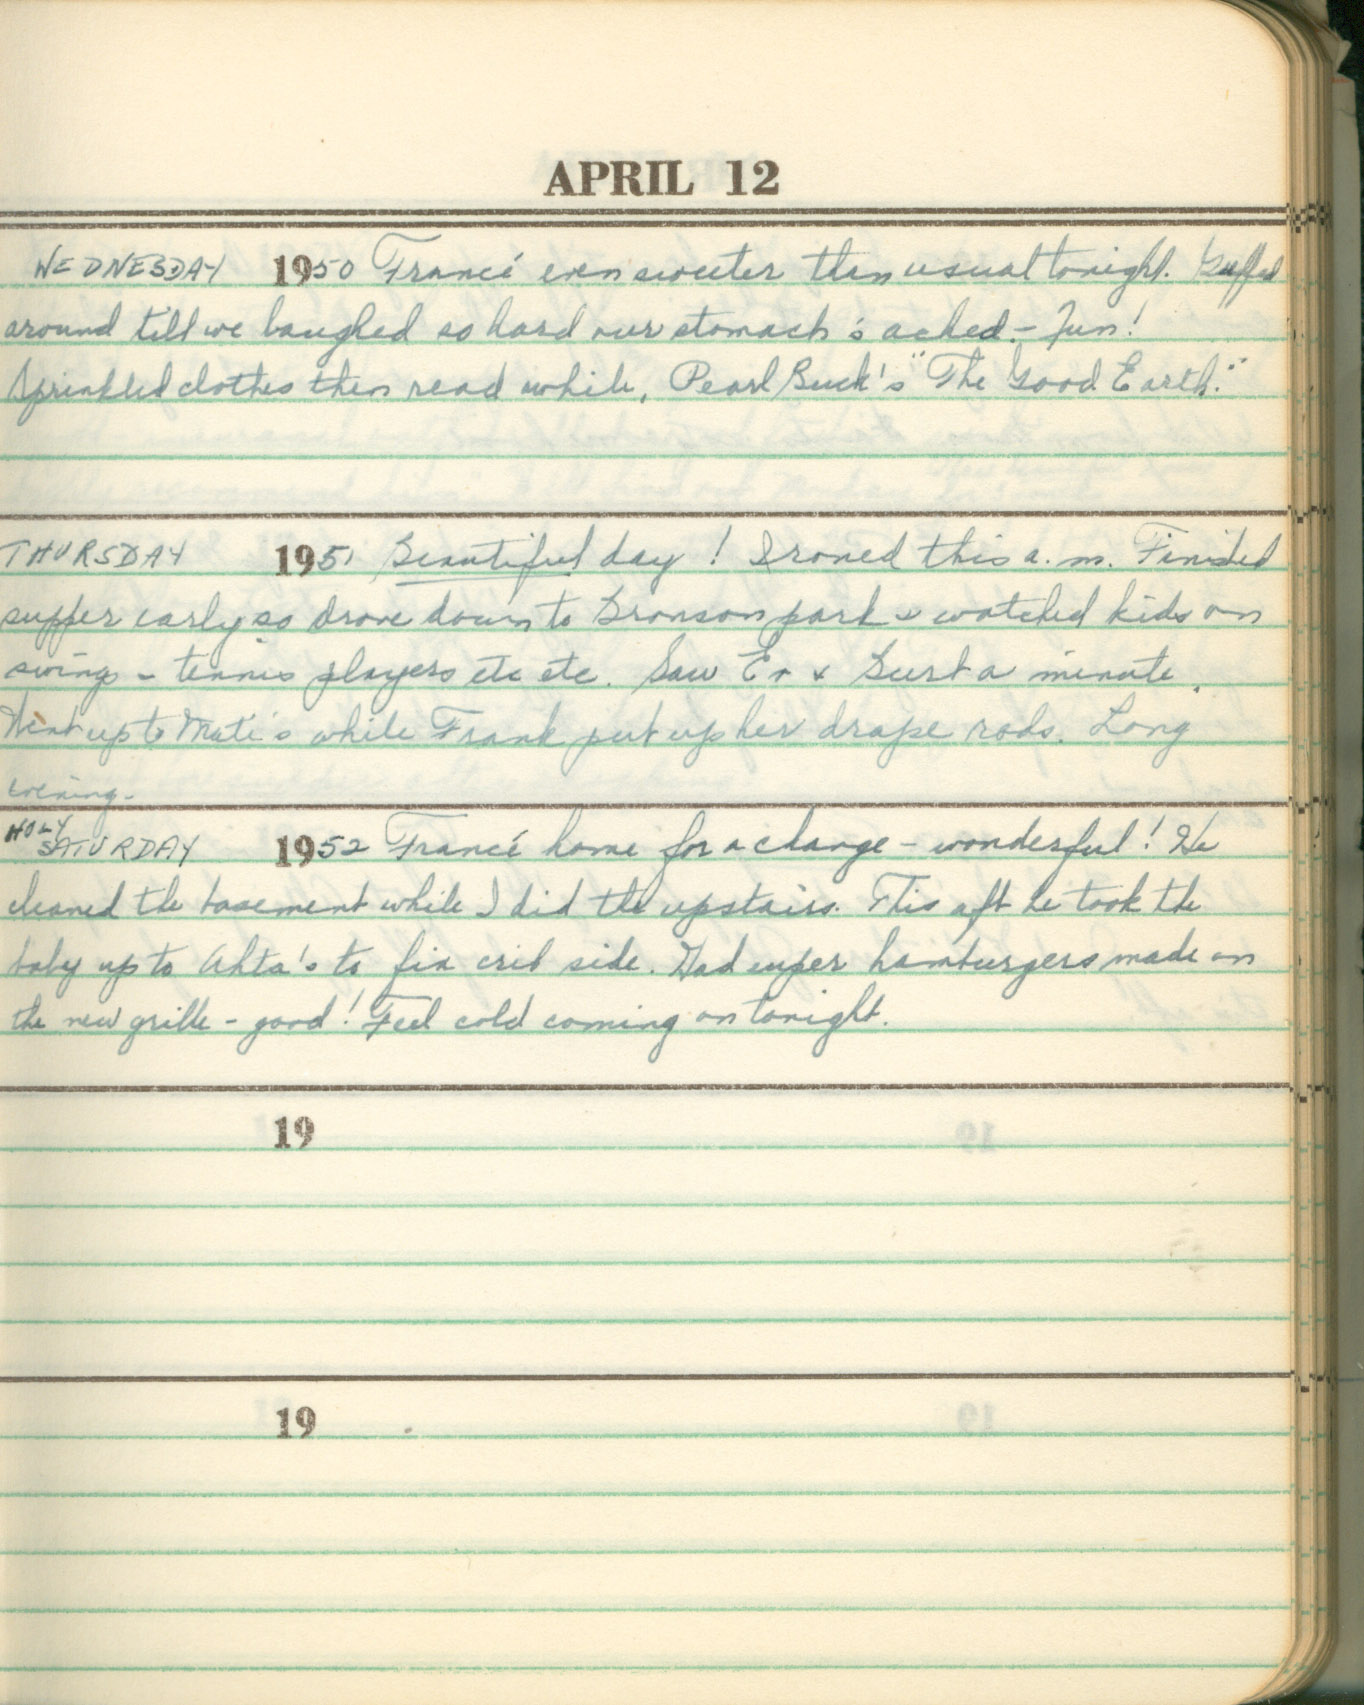 APRIL 12
WEDNESDAY 1950 Francé even sweeter than usual tonight. Guffed
around till we laughed so hard our stomach's ached - Fun!
Sprinkled clothes then read while, Pearl Buck's "The Good Earth."
THURSDAY 1951 Beautiful day! Ironed this a.m. Finished
supper early so drove down to Bronson park & watched kids on
swings - tennis players etc etc. Saw Er & Burt a minute.
Went up to Mati's while Frank put up her drape rods. Long
evening.
HOLY
SATURDAY 1952 Francé home for a change - wonderful! He
cleaned the basement while I did the upstairs. This aft he took the
baby up to Ahta's to fix crib side. Had super hamburgers made on
the new grille - good! Feel cold coming on tonight.
19
19